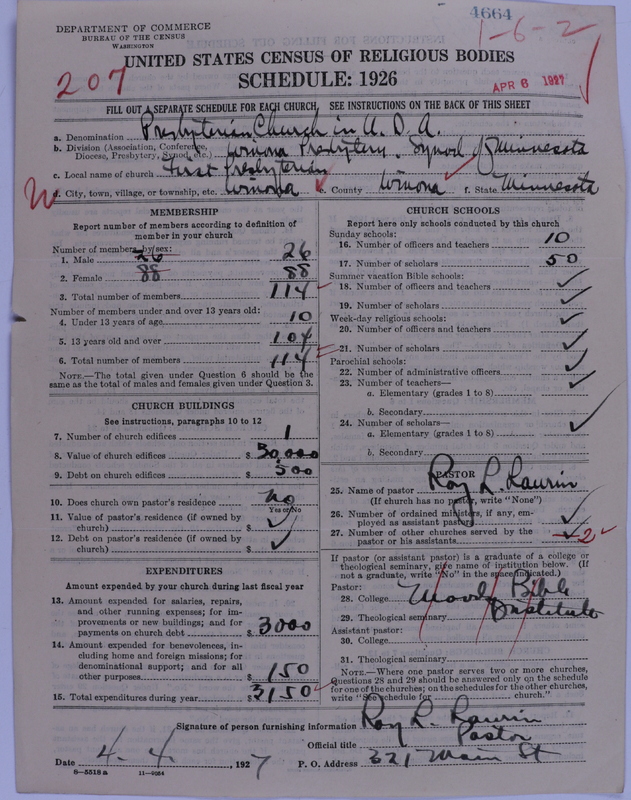 4664
DEPARTMENT OF COMMERCE
BUREAU OF THE CENSUS
WASHINGTON
1-6-2
UNITED STATES CENSUS OF RELIGIOUS BODIES
207
SCHEDULE: 1926
APR 6 1927
FILL OUT A SEPARATE SCHEDULE FOR EACH CHURCH. SEE INSTRUCTIONS ON THE BACK OF THIS SHEET
a. Denomination Presbyterian Church in U.S.A.
b. Division (Association, Conference, Diocese, Presbytery, Synod, etc.) Winona Presbytery. Synod of Minnesota
c. Local name of church First Presbyterian
W
d. City, town, village, or township, etc. Winona e. County Winona f. State Minnesota
MEMBERSHIP
Report number of members according to definition of member in your church
Number of members by sex:
1. Male 26 26
2. Female 88 88
3. Total number of members 114
Number of members under and over 13 years old:
4. Under 13 years of age 10
5. 13 years old and over 104
6. Total number of members 114
NOTE.—The total given under Question 6 should be the same as the total of males and females given under Question 3.
CHURCH BUILDINGS
See instructions, paragraphs 10 to 12
7. Number of church edifices 1
8. Value of church edifices $ 30,000
9. Debt on church edifices $ 500
10. Does church own pastor's residence No
Yes or No
11. Value of pastor's residence (if owned by church) $ ✓
12. Debt on pastor's residence (if owned by church) $ ✓
EXPENDITURES
Amount expended by your church during last fiscal year
13. Amount expended for salaries, repairs, and other running expenses; for improvements or new buildings; and for payments on church debt $ 3000
14. Amount expended for benevolences, including home and foreign missions; for denominational support; and for all other purposes $ 150
15. Total expenditures during year $ 3150
CHURCH SCHOOLS
Report here only schools conducted by this church
Sunday schools:
16. Number of officers and teachers 10
17. Number of scholars 50
Summer vacation Bible schools:
18. Number of officers and teachers ✓
19. Number of scholars ✓
Week-day religious schools:
20. Number of officers and teachers ✓
21. Number of scholars ✓
Parochial schools:
22. Number of administrative officers ✓
23. Number of teachers—
a. Elementary (grades 1 to 8)
b. Secondary
24. Number of scholars—
a. Elementary (grades 1 to 8)
b. Secondary
PASTOR
25. Name of pastor Roy L. Laurin
(If church has no pastor, write "None")
26. Number of ordained ministers, if any, employed as assistant pastors ✓
27. Number of other churches served by the pastor or his assistants 2
If pastor (or assistant pastor) is a graduate of a college or theological seminary, give name of institution below. (If not a graduate, write "No" in the space indicated.)
Pastor:
28. College Moody Bible
29. Theological seminary Institute
Assistant pastor:
30. College
31. Theological seminary
NOTE.—Where one pastor serves two or more churches, Questions 28 and 29 should be answered only on the schedule for one of the churches; on the schedules for the other churches, write "See schedule for church."
Signature of person furnishing information Roy L. Laurin
Official title Pastor
Date 4-4, 1927 P. O. Address 321 Main St
8-5518a 11-9264